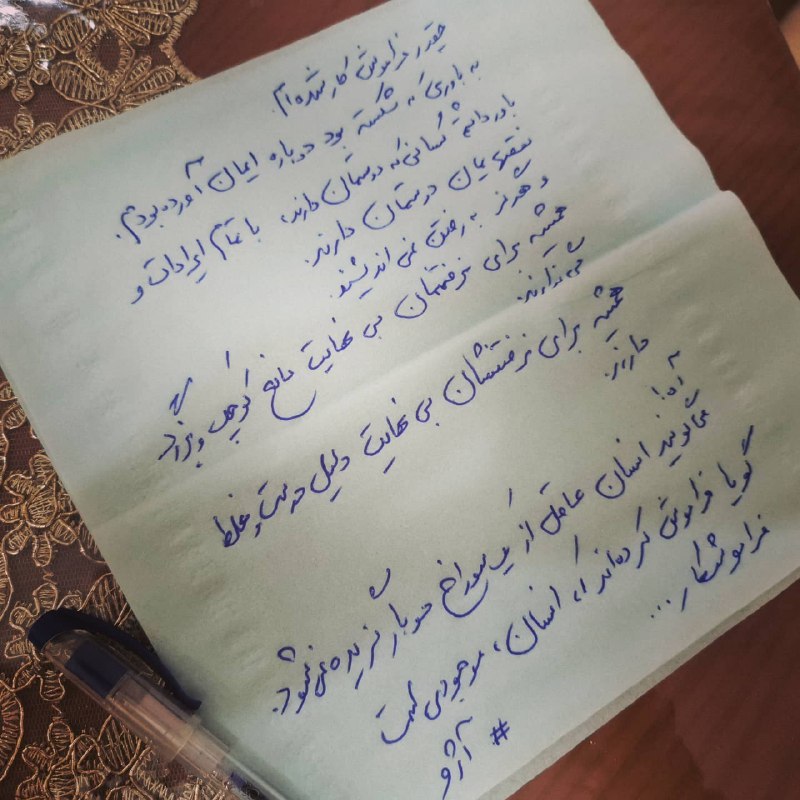 چقدر فراموش کار شده‌ام.
به باوری که شکسته بود دوباره ایمان آورده بودم.
باور داشتم کسانی که دوستمان دارند، با تمام ایرادات و
نقص‌هایمان دوستمان دارند.
و هرگز به رفتن نمی اندیشند.
همیشه برای نرفتنمان بی نهایت مانع کوچک و بزرگ
می‌گذارند.
همیشه برای نرفتنشان بی نهایت دلیل درست و غلط
دارند.
آه!
می‌گویند انسان عاقل از یک سوراخ دوبار گزیده نمی‌شود.
گویا فراموش کرده‌اند که، انسان، موجودی است
فراموشکار...
# آرژو